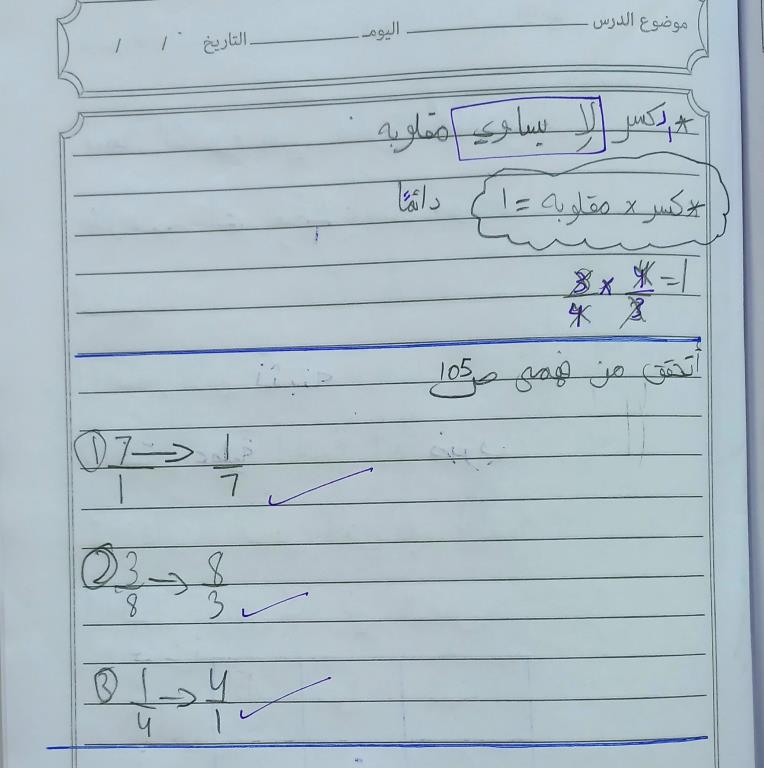 موضوع الدرس اليوم التاريخ / /
* الكسر لا يساوي مقلوبه
* كسر × مقلوبه = ١ دائمًا
3/4 × 4/3 = 1
أتحقق من فهمي ص 105
① 7/1 → 1/7
② 3/8 → 8/3
③ 1/4 → 4/1